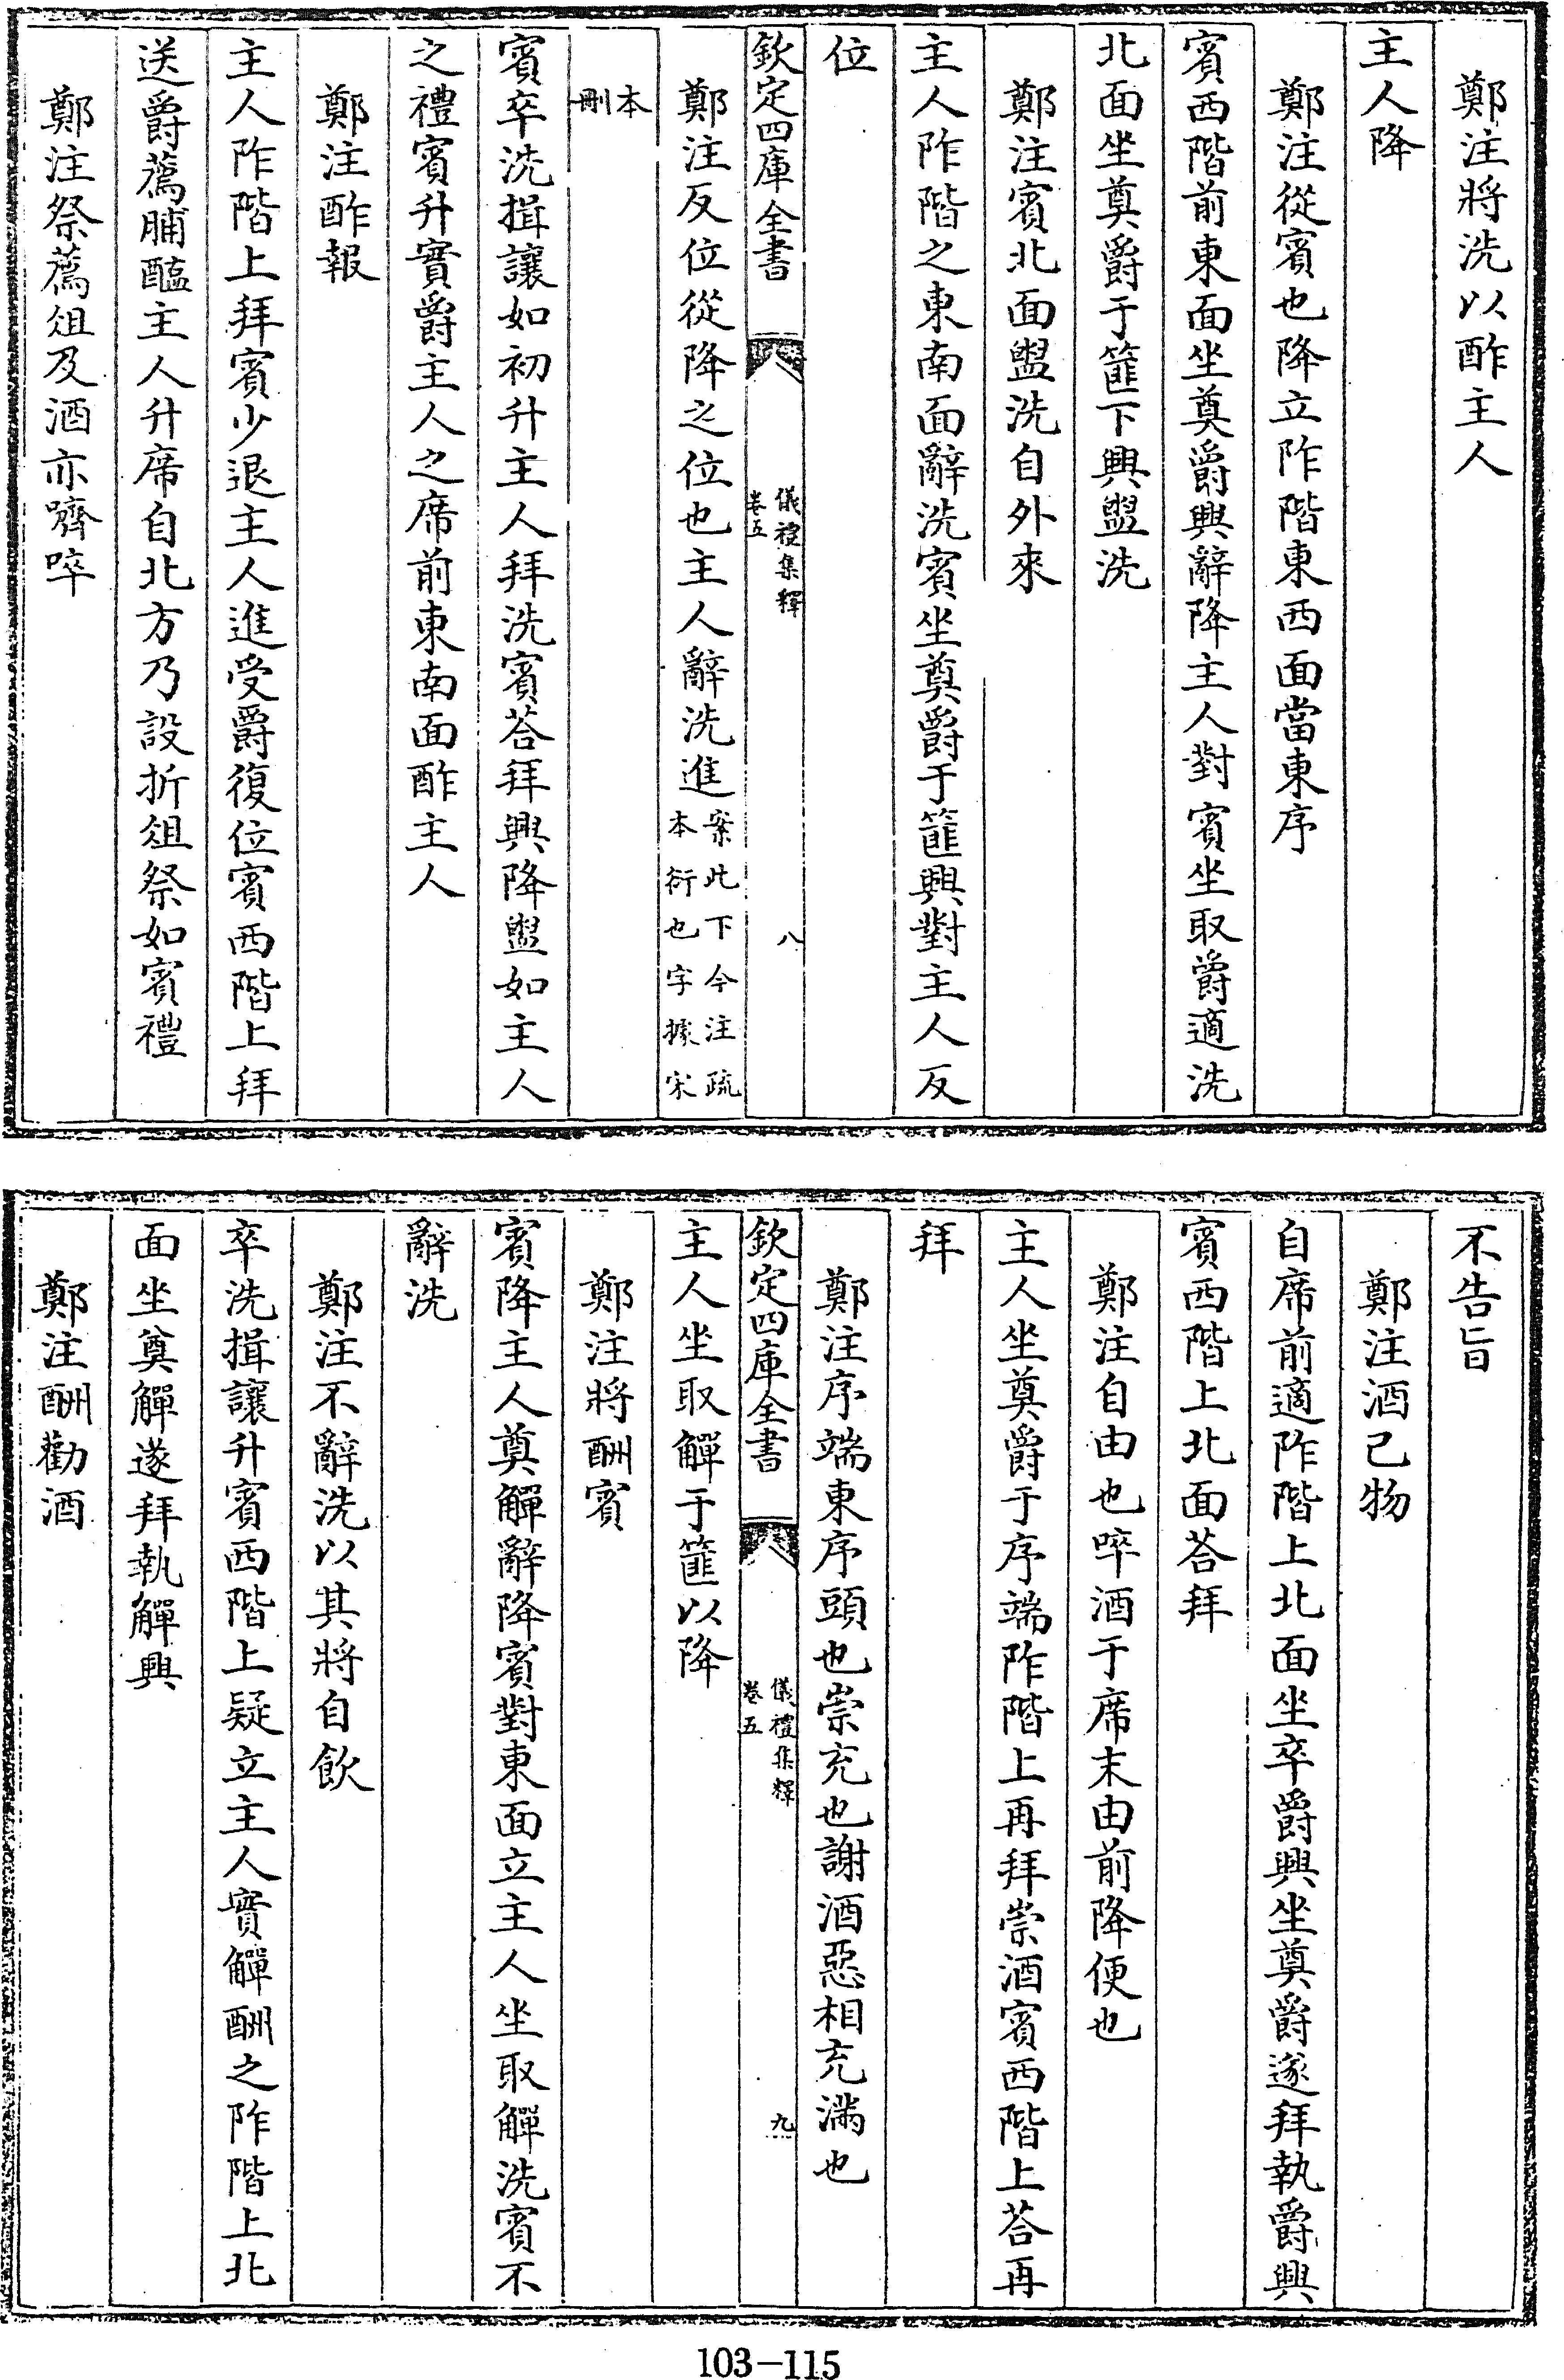 鄭注將洗以酢主人
主人降
鄭注從賓也降立阼階東西面當東序
賓西階前東面坐奠爵興辭降主人對賓坐取爵適洗
北面坐奠爵于篚下興盥洗
鄭注賓北面盥洗自外來
主人阼階之東南面辭洗賓坐奠爵于篚興對主人反
位
欽定四庫全書
儀禮集釋
卷五
八
鄭注反位從降之位也主人辭洗進案此下今注疏
本衍也字據宋
本
刪
賓卒洗揖讓如初升主人拜洗賓荅拜興降盥如主人
之禮賓升實爵主人之席前東南面酢主人
鄭注酢報
主人阼階上拜賓少退主人進受爵復位賓西階上拜
送爵薦脯醢主人升席自北方乃設折俎祭如賓禮
鄭注祭薦俎及酒亦嚌啐
不告旨
鄭注酒己物
自席前適阼階上北面坐卒爵興坐奠爵遂拜執爵興
賓西階上北面荅拜
鄭注自由也啐酒于席末由前降便也
主人坐奠爵于序端阼階上再拜崇酒賓西階上荅再
拜
鄭注序端東序頭也崇充也謝酒惡相充滿也
欽定四庫全書
儀禮集釋
卷五
九
主人坐取觶于篚以降
鄭注將酬賓
賓降主人奠觶辭降賓對東面立主人坐取觶洗賓不
辭洗
鄭注不辭洗以其將自飲
卒洗揖讓升賓西階上疑立主人實觶酬之阼階上北
面坐奠觶遂拜執觶興
鄭注酬勸酒
103-115